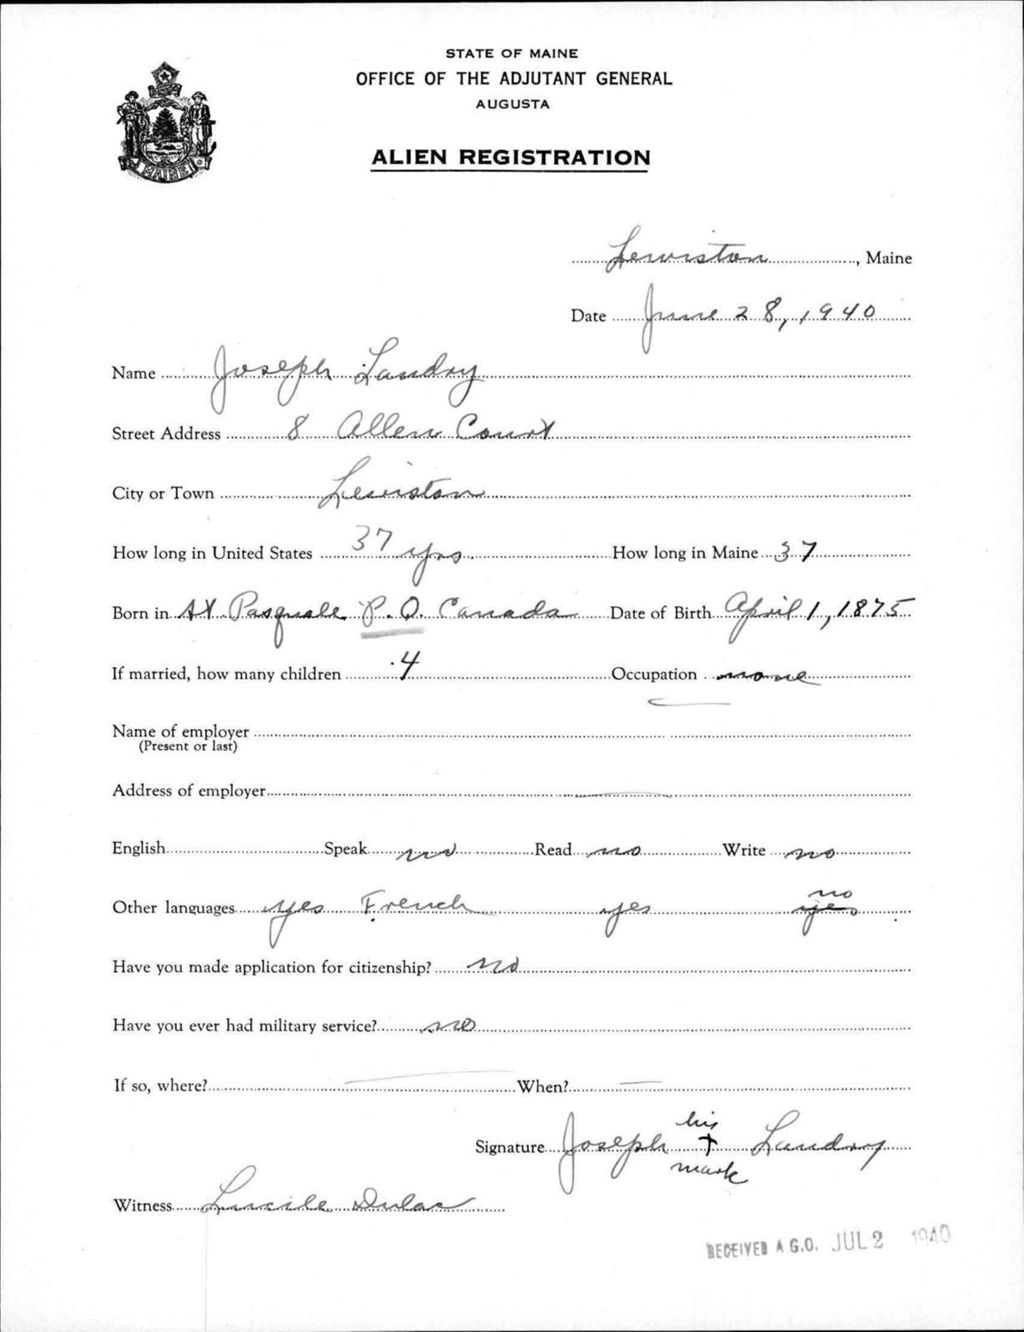 STATE OF MAINE
OFFICE OF THE ADJUTANT GENERAL
AUGUSTA
ALIEN REGISTRATION
MAINE
Lewiston, Maine
Date June 28, 1940
Name Joseph Landry
Street Address 8 Allen Court
City or Town Lewiston
How long in United States 37 yrs. How long in Maine 37
Born in St. Pasquale P. Q. Canada Date of Birth April 1, 1875
If married, how many children 4 Occupation none
Name of employer
(Present or last)
Address of employer
English Speak no Read no Write no
no
Other languages yes French yes yes
Have you made application for citizenship? no
Have you ever had military service? no
If so, where? When?
his
Signature Joseph † Landry
mark
Witness Lucile Dulac
RECEIVED A.G.O. JUL 2 1940